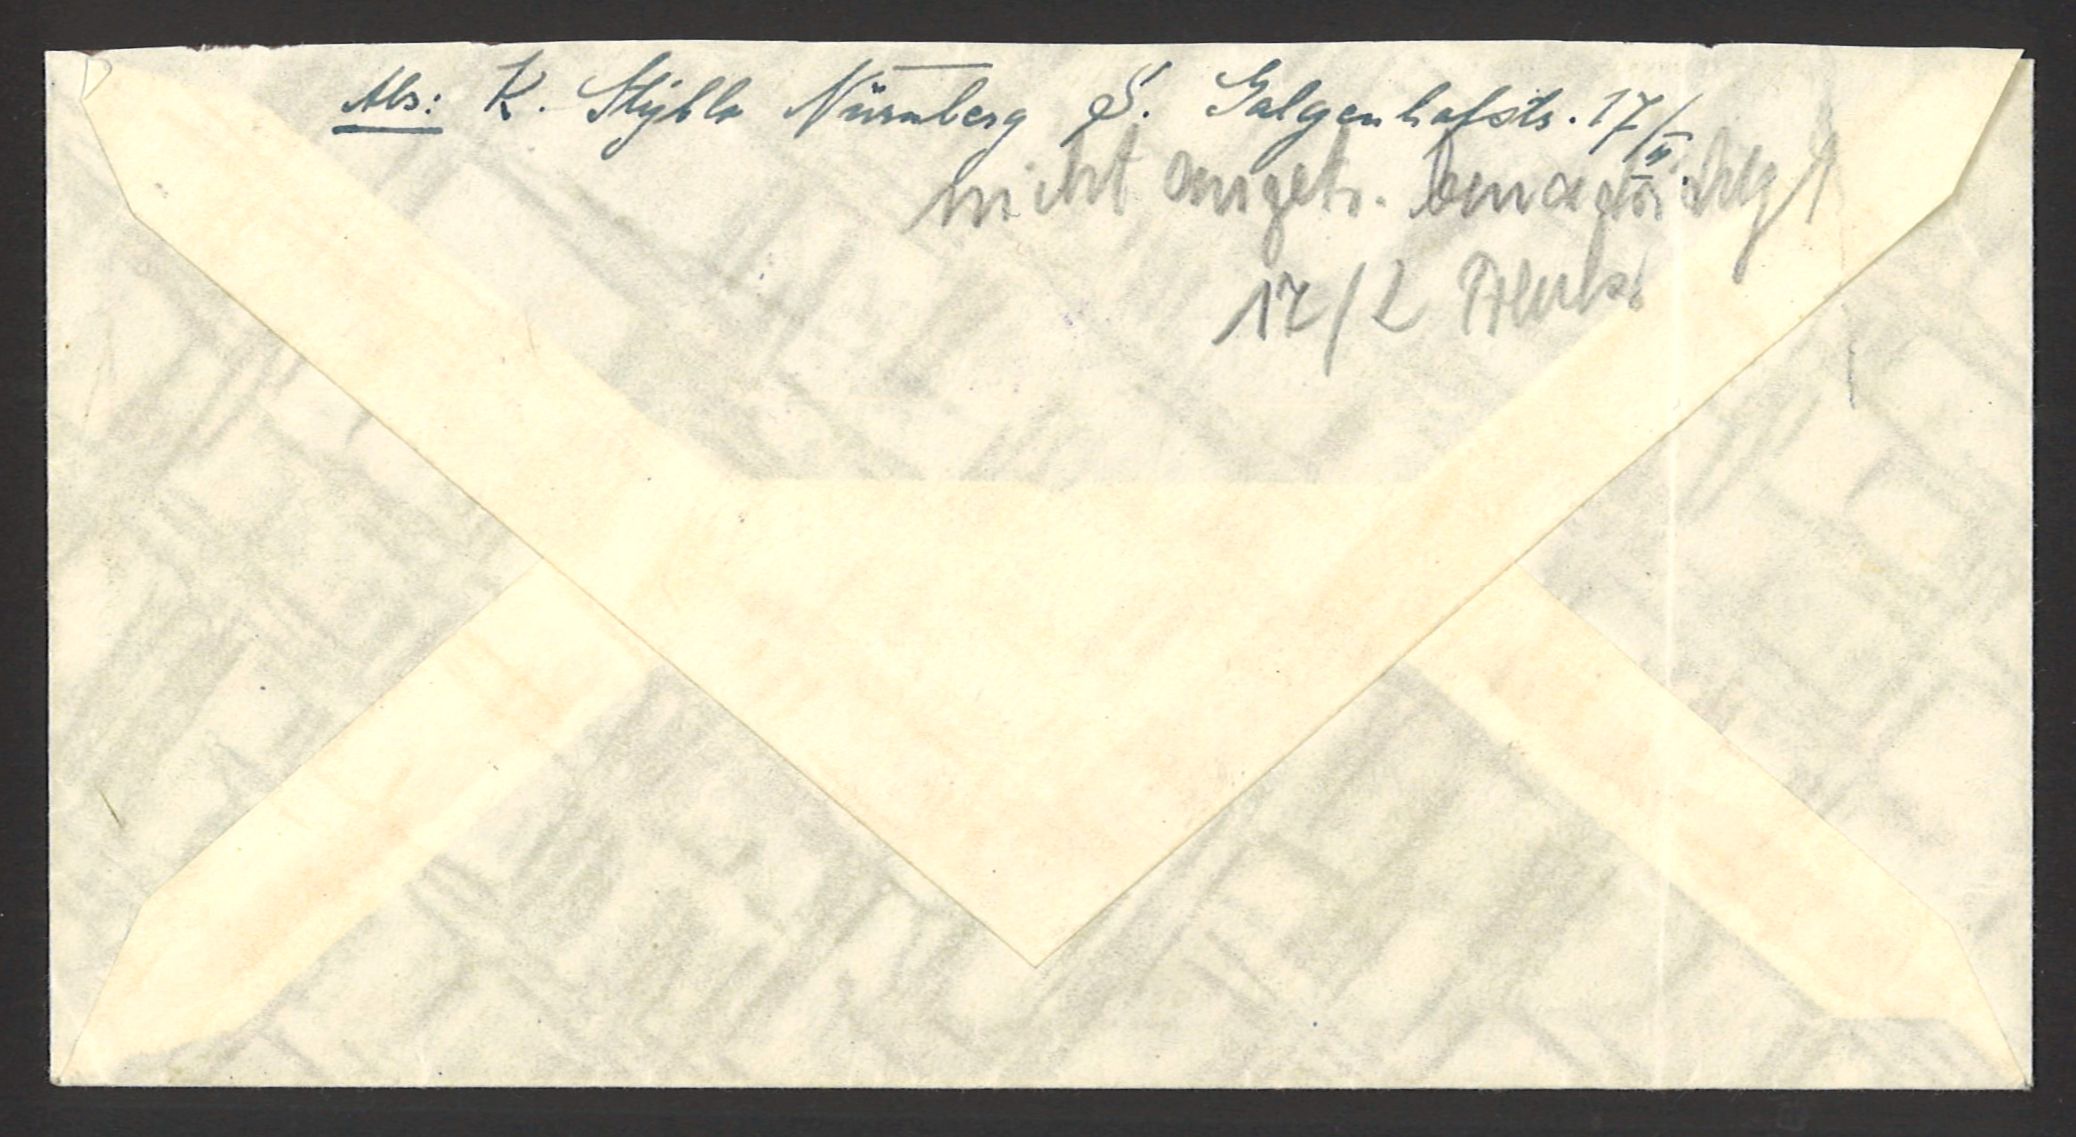 Abs: K. Stybla Nürnberg S. Galgenhofstr. 17/II.
nicht anget. benachrichtgt
17/2